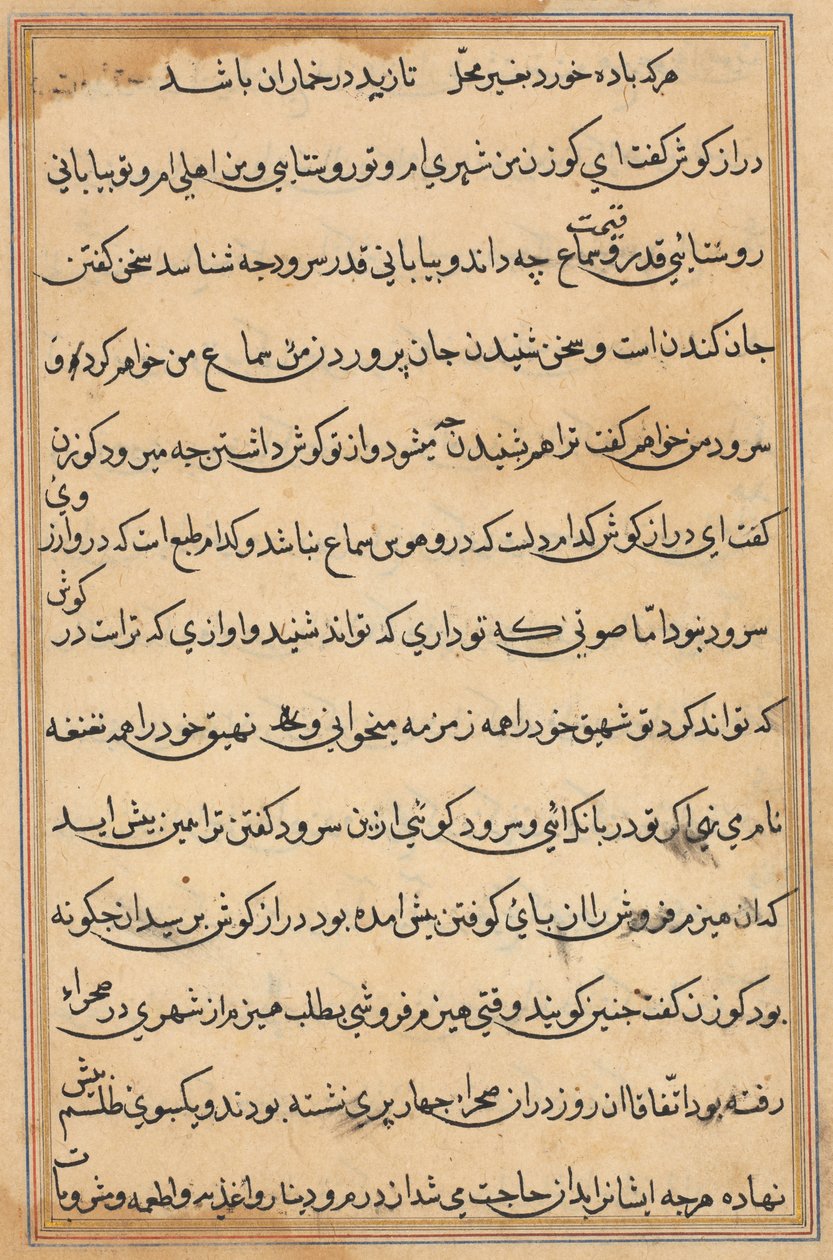 هرکه باده خورد بغیر محلّ تا زید در خماران باشد
دراز کوش کفت ای کوزن من شهری ام و تو روستایی و من اهلی ام و تو بیابانی
روستائی قدر و قیمت سماع چه داند و بیابانی قدر سرود جه شناسد سخن کفتن
جان کندن است و سخن شنیدن جان پروردن من سماع من خواهم کرد و
سرود من خواهم کفت ترا هم بشنیدن جه میشود و از تو کوش داشتن جه میرود کوزن
کفت ای دراز کوش کدام دلست که درو هوس سماع نباشد و کدام طبع است که درو ارزوی
سرود نبود امّا صوتی که تو داری که تواند شنید و اوازی که تراست در کوش
که تواند کرد تو شهیق خود را همه زمزمه میخوانی و نهیق خود را همه نغنغه
نام می نهی اکر تو در بانک ائی و سرود کوئی از ین سرود کفتن ترا همین بیش اید
که ان هیزم فروش را از بائ کوفتن بیش امده بود دراز کوش برسید ان جکونه
بود کوزن کفت جنین کویند وقتی هیزم فروشی بطلب هیزم از شهری در صحراء
رفته بود اتّفاقا ان روز دران صحراء جهار پری نشسته بودند و یکسبوی طلسم بیش
نهاده هرجه ایشانرا بدان حاجت می شد از درم و دینار و اغذیه و اطعمه و مشروبات